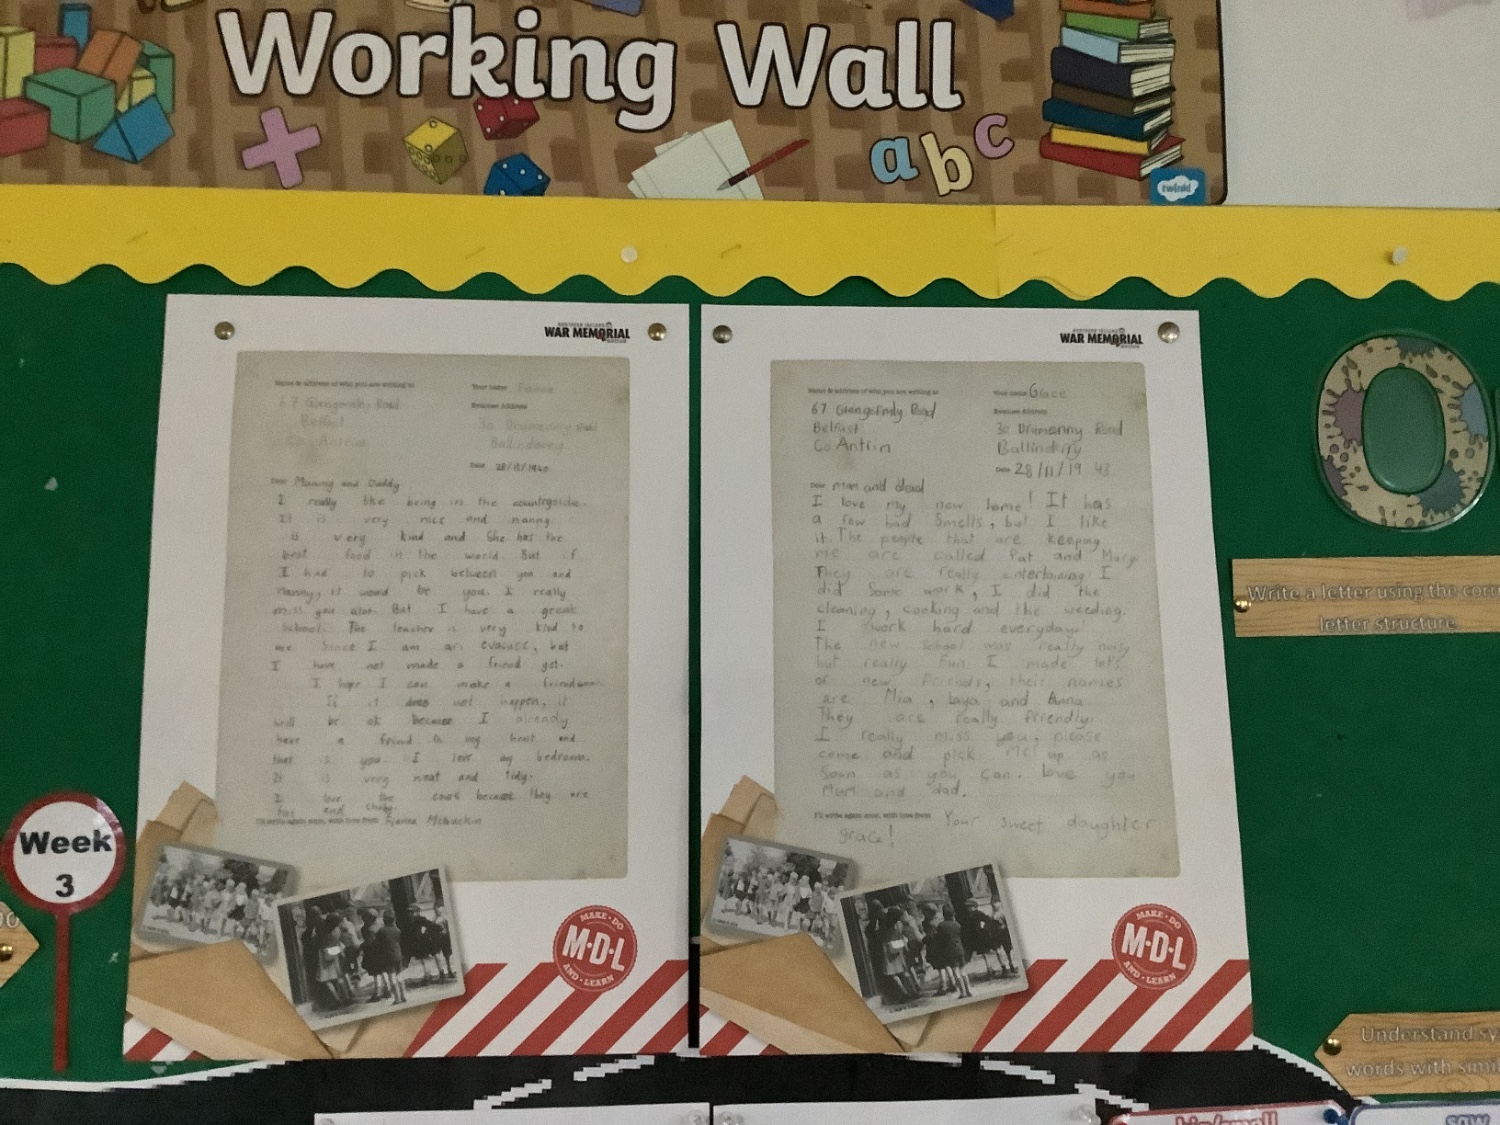 Working Wall
abc
twinkl
NORTHERN IRELAND
WAR MEMORIAL
MUSEUM
Name & address of who you are writing to
Your name
67 Road
Belfast
Co Antrim
Evacuee Address
30 Drumanny Road
Ballinderry
Date 28/11/1940
Dear Mummy and Daddy
I really like being in the countryside.
It is very nice and nanny
is very kind and She has the
best food in the world. But if
I had to pick between you and
nanny, it would be you. I really
miss you alot. But I have a great
School. The teacher is very kind to
me Since I am an evacuee, but
I have not made a friend yet.
I hope I can make a friend
If it does not happen, it
will be ok because I already
have a friend in my heart and
that is you. I love my bedroom.
It is very neat and tidy.
I love the cows because they are
fat and chubby.
I'll write again soon, with love from
NORTHERN IRELAND
WAR MEMORIAL
MUSEUM
Name & address of who you are writing to
Your name Grace
67 Road
Belfast
Co Antrim
Evacuee Address
30 Drumanny Road
Ballinderry
Date 28/11/19 43
Dear mum and dead
I love my new home! It has
a few bad Smells, but I like
it. The people that are keeping
me are called Pat and Mary.
They are really entertaining I
did Some work, I did the
cleaning, cooking and the weeding.
I work hard everyday!
The new school was really noisy
but really fun. I made lot's
of new friends, their names
are Mia, Laya and Anna
They are really friendly.
I really miss you, please
come and pick me! up as
Soon as you can. love you
Mum and dad.
I'll write again soon, with love from Your sweet daughter
grace!
MAKE·DO
M·D·L
AND·LEARN
MAKE·DO
M·D·L
AND·LEARN
Week
3
O
Write a letter using the
letter structure
Understand
words with
big/small
saw